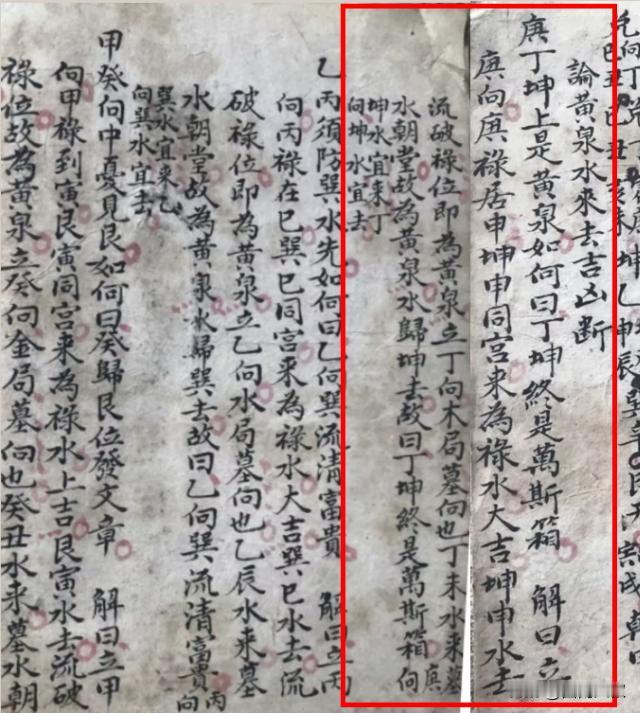 論黃泉水來去吉凶斷
庚丁坤上是黃泉如何曰丁坤終是萬斯箱 解曰立
庚向庚祿居申坤申同宮來為祿水大吉坤申水去
流破祿位即為黃泉立丁向木局墓向也丁未水來墓
水朝堂故為黃泉水歸坤去故曰丁坤終是萬斯箱 庚向
坤水宜來丁
向坤水宜去
乙丙須防巽水先如何曰乙向巽流清富貴 解曰立丙
向丙祿在巳巽巳同宮來為祿水大吉巽巳水去流
破祿位即為黃泉立乙向水局墓向也乙辰水來墓
水朝堂故為黃泉水歸巽去故曰乙向巽流清富貴 丙向
巽水宜來乙
向巽水宜去
甲癸向中憂見艮如何曰癸歸艮位發文章 解曰立甲
向甲祿到寅艮寅同宮來為祿水上吉艮寅水去流破
祿位故為黃泉立癸向金局墓向也癸丑水來墓水朝